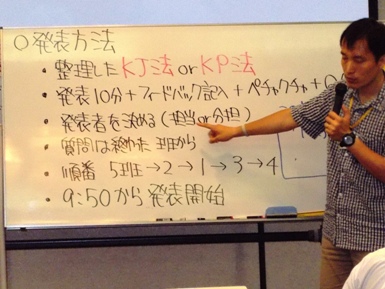 ○発表方法
・整理したKJ法orKP法
・発表10分+フィードバック記入+ペチャクチャ+Q
・発表者を決める(担当or分担)
・質問は終わった班から
・順番 5班→2→1→3→4
・9:50から発表開始